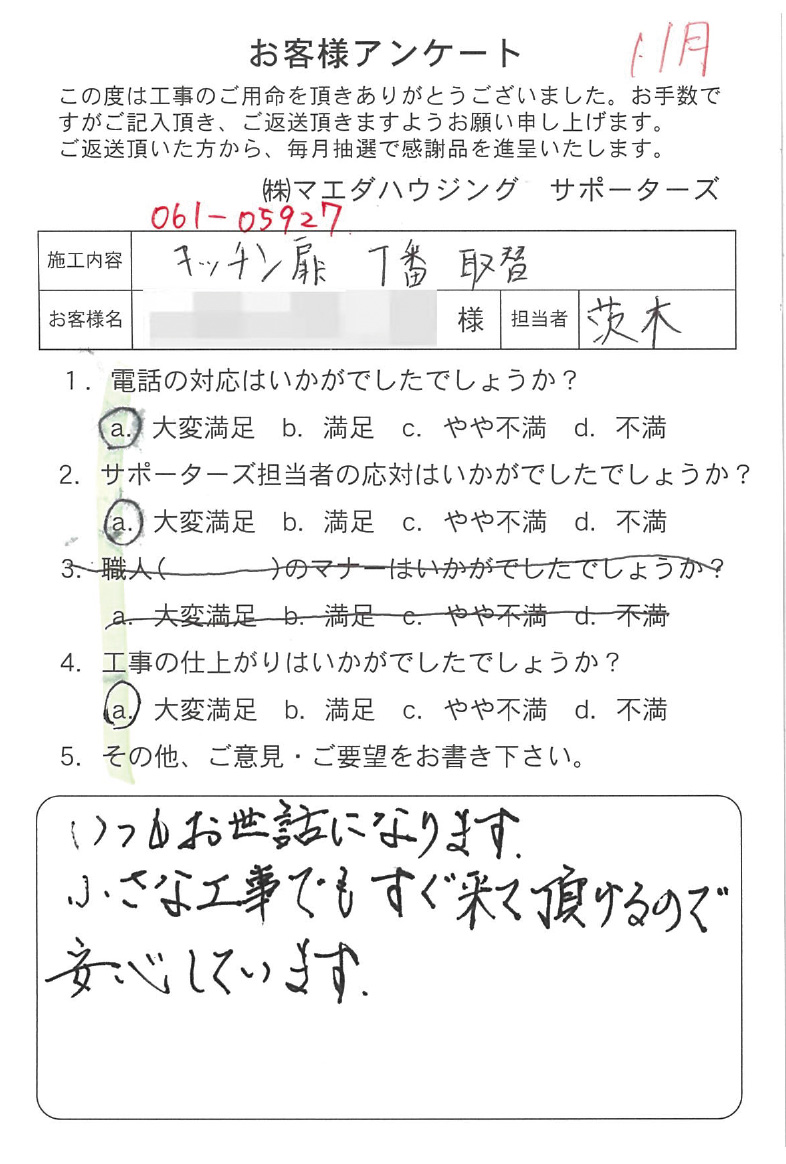 お客様アンケート
11月
この度は工事のご用命を頂きありがとうございました。お手数で
すがご記入頂き、ご返送頂きますようお願い申し上げます。
ご返送頂いた方から、毎月抽選で感謝品を進呈いたします。
㈱マエダハウジング サポーターズ
061-05927
施工内容 キッチン扉 丁番 取替
お客様名 様 担当者 茨木
1. 電話の対応はいかがでしたでしょうか？
a. 大変満足 b. 満足 c. やや不満 d. 不満
2. サポーターズ担当者の応対はいかがでしたでしょうか？
a. 大変満足 b. 満足 c. やや不満 d. 不満
3. 職人( )のマナーはいかがでしたでしょうか？
a. 大変満足 b. 満足 c. やや不満 d. 不満
4. 工事の仕上がりはいかがでしたでしょうか？
a. 大変満足 b. 満足 c. やや不満 d. 不満
5. その他、ご意見・ご要望をお書き下さい。
いつもお世話になります.
小さな工事でもすぐ来て頂けるので
安心しています.